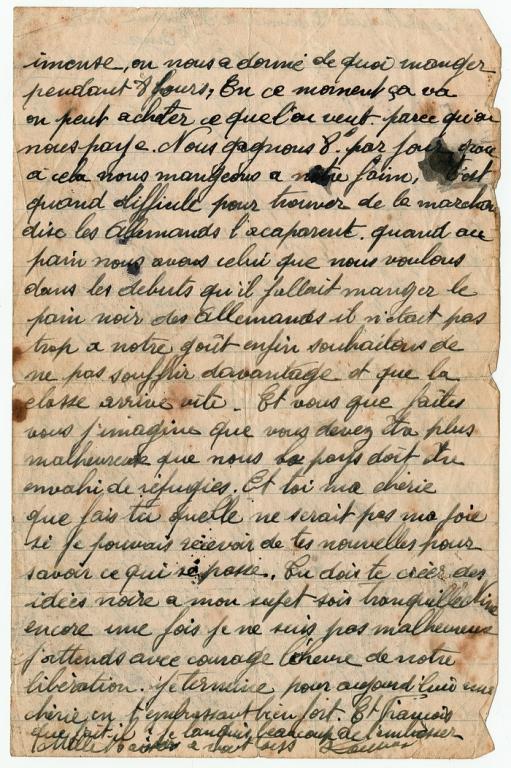 imense, on nous a donné de quoi manger
pendant 8 jours, En ce moment ça va
on peut acheter ce que l'on veut parce qu'on
nous paye. Nous gagnons 8 par jour grace
a cela nous mangeons a notre faim, C'est
quand difficile pour trouver de la marchan
dise les Allemands l'acaparent. quand au
pain nous avons celui que nous voulons
dans les debuts qu'il fallait manger le
pain noir des allemands il n'était pas
trop a notre goût enfin souhaitons de
ne pas souffrir davantage et que la
classe arrive vite. Et vous que faites
vous j'imagine que vous devez être plus
malheureux que nous le pays doit être
envahi de réfugies. Et toi ma cherie
que fais tu quelle ne serait pas ma joie
si je pouvais recevoir de tes nouvelles pour
savoir ce qui se passe. Tu dois te créer des
idées noire a mon sujet sois tranquille
encore une fois je ne suis pas malheureux
j'attends avec courage l'heure de notre
libération. je termine pour aujourd'hui ma
chérie en t'embrassant bien fort. Et François
que fait-il je languis beaucoup de l'embrasser
Mille baisers a vout